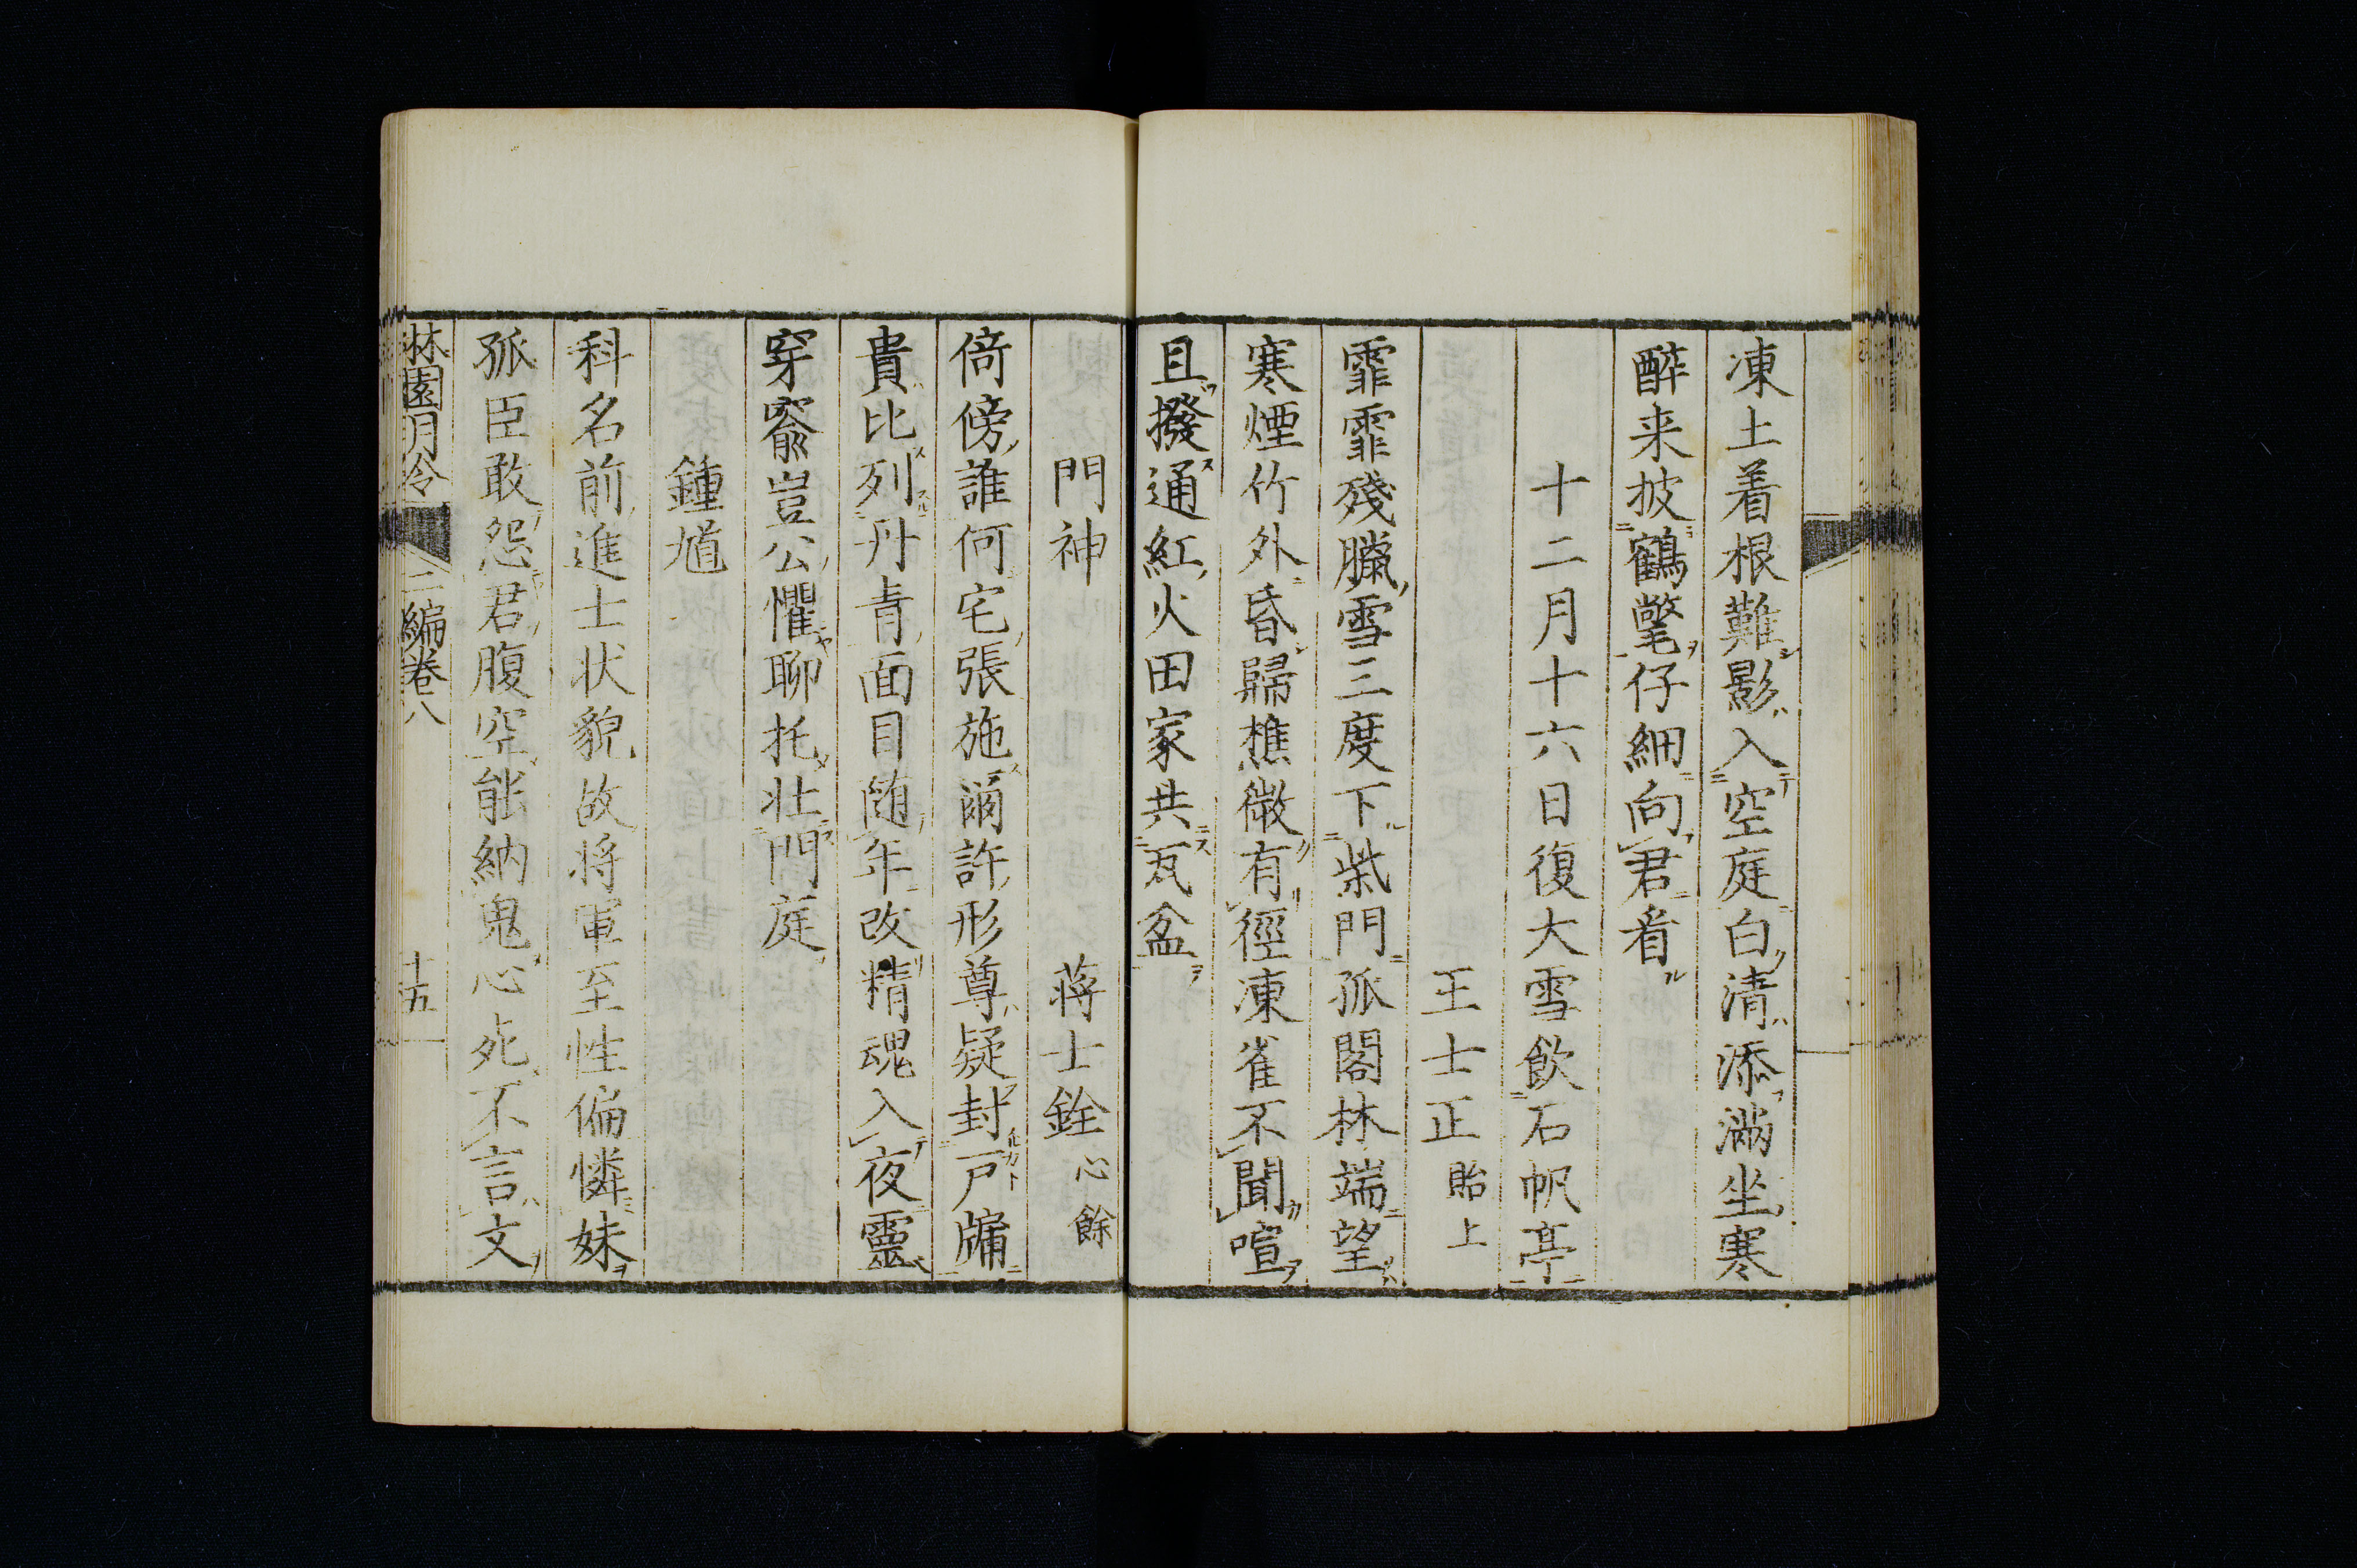 凍土着根難影入空庭白清添滿坐寒
醉来披鶴氅仔細向君看
十二月十六日復大雪飲石帆亭
王士正貽上
霏霏殘臘雪三度下柴門孤閣林端望
寒煙竹外昏歸樵微有徑凍雀不聞喧
且撥通紅火田家共瓦盆
門神 蔣士銓心餘
倚傍誰何宅張施爾許形尊疑封戸牖
貴比列丹青面目随年改精魂入夜靈
穿窬豈公懼聊托壮門庭
鍾馗
科名前進士状貌故将軍至性偏憐妹
孤臣敢怨君腹空能納鬼心死不言文
林園月令 二編卷八 十五